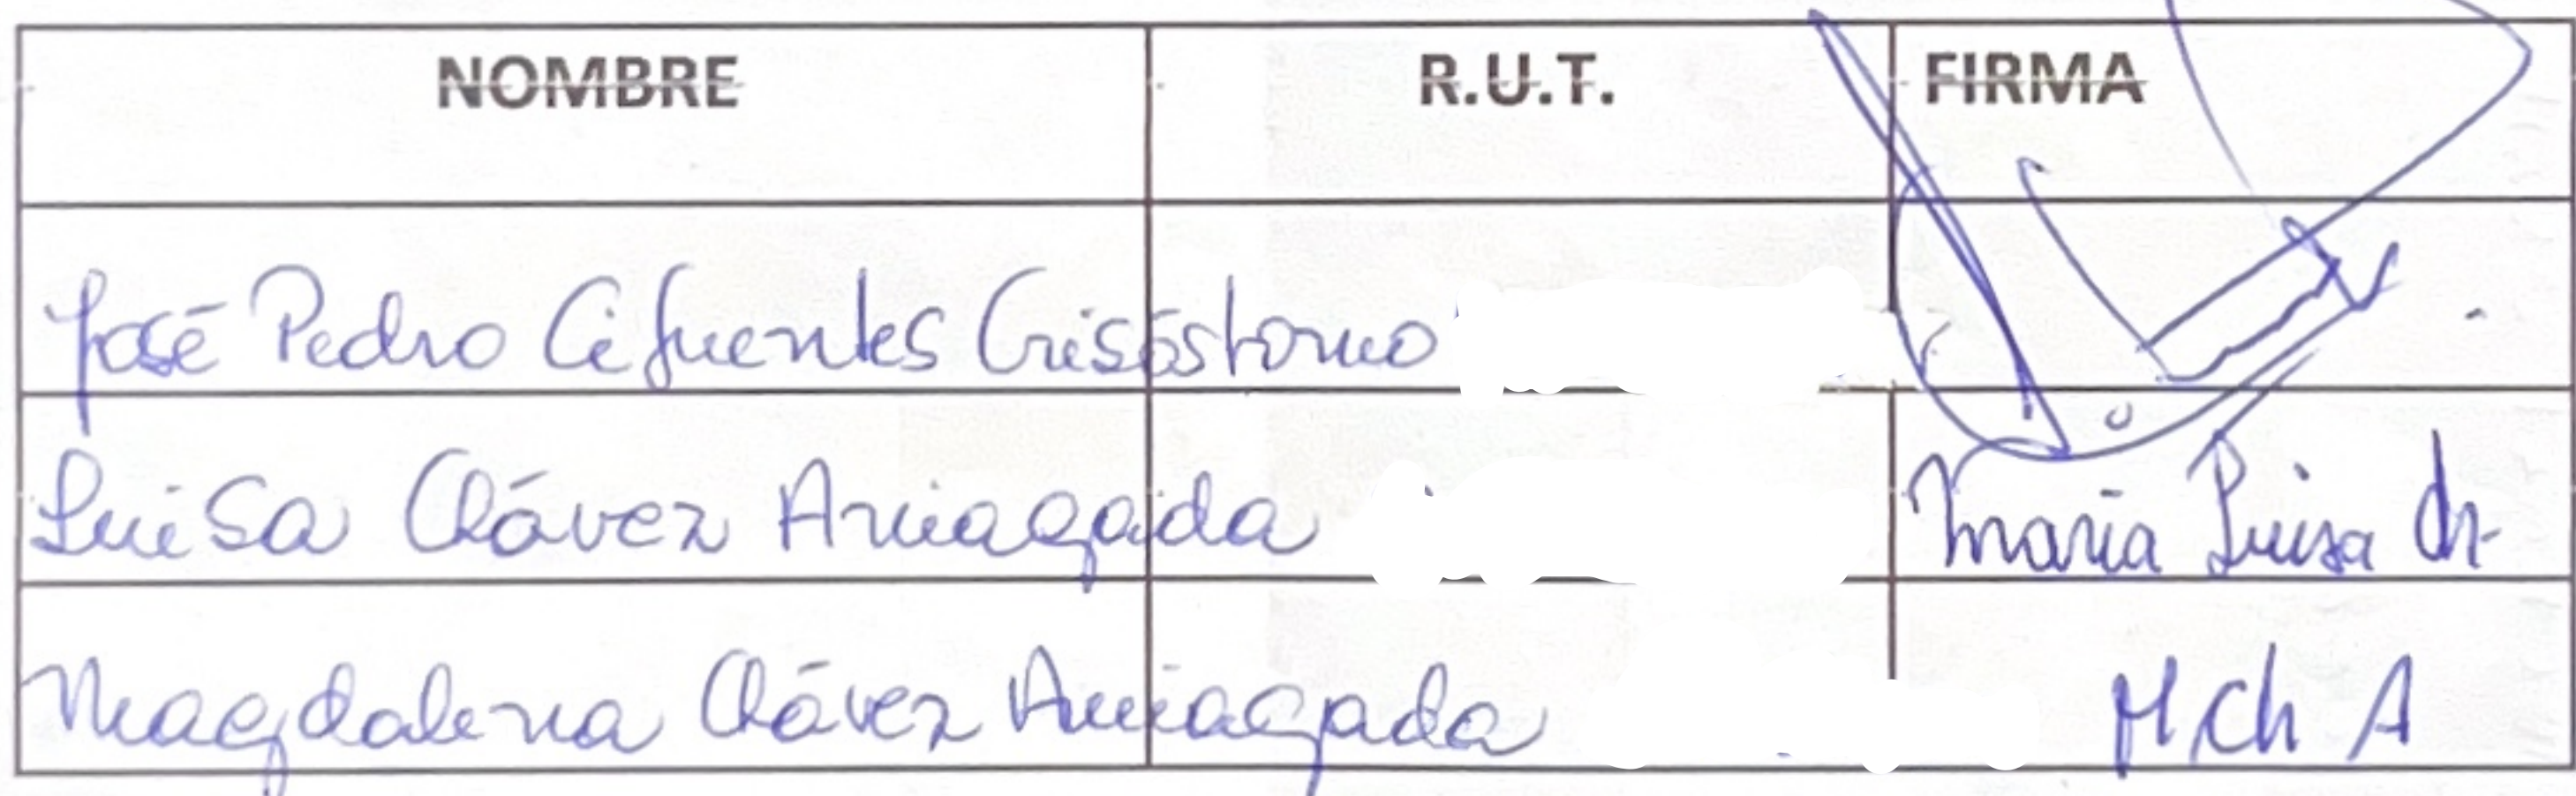 NOMBRE R.U.T. FIRMA
José Pedro Cifuentes Crisóstomo
Luisa Chávez Arriagada Maria Luisa Ch
Magdalena Chávez Arriagada M Ch A